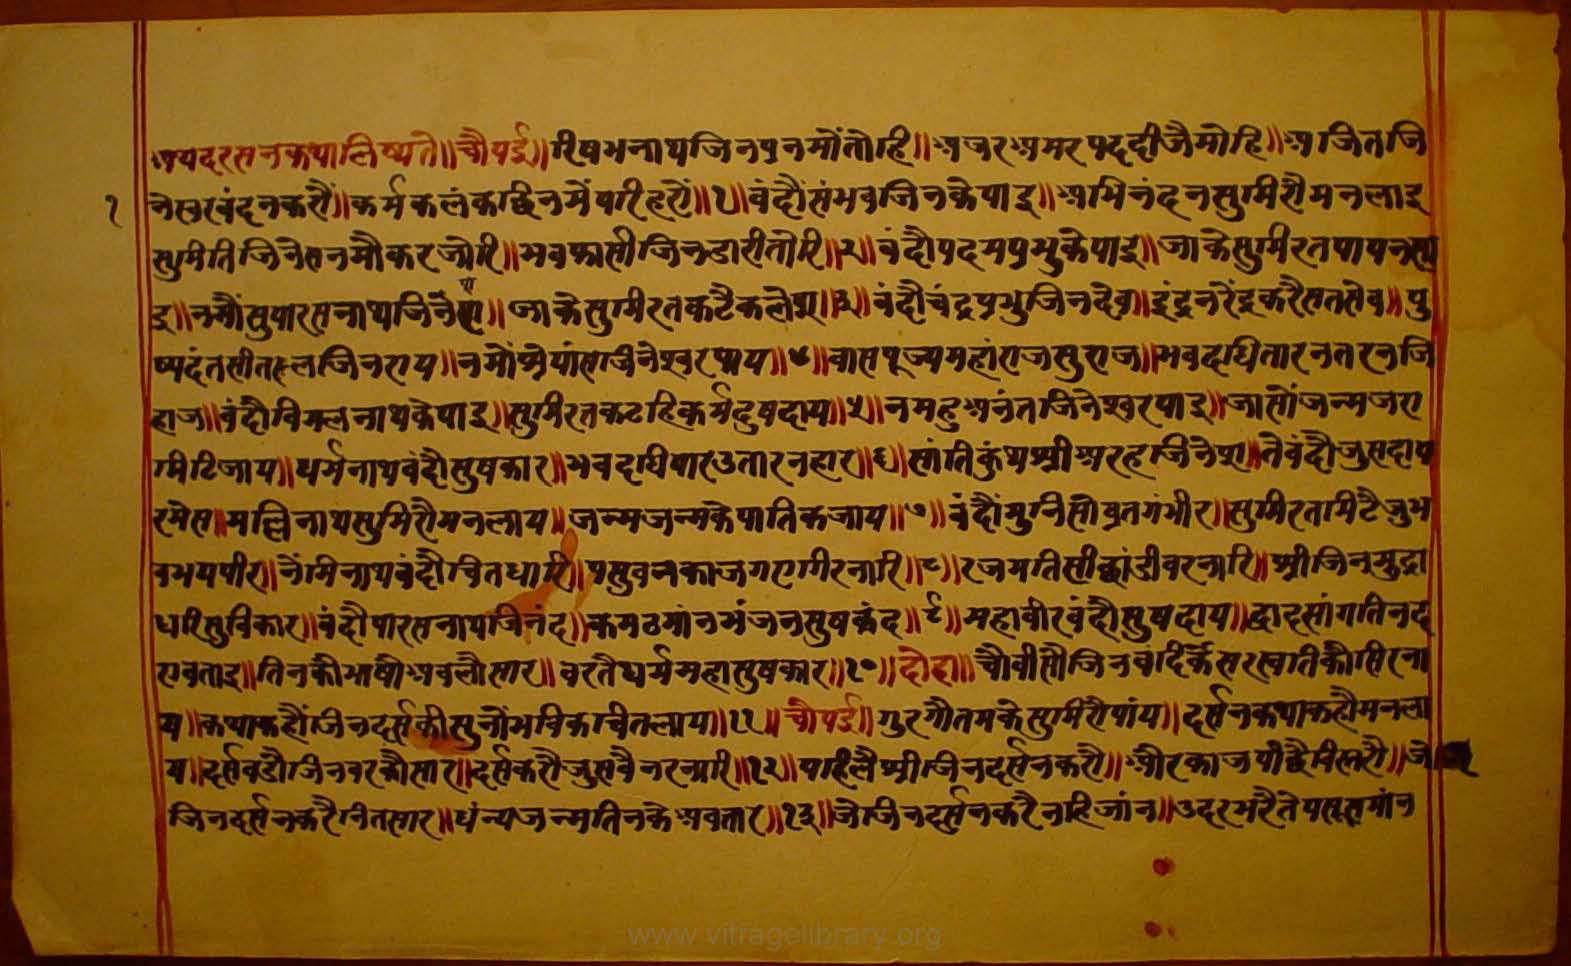 अथ दरसन कथा लिष्यते॥चौपई॥रिषभनाथ जिन प्रनमों तोहि॥अजर अमर पद दीजै मोहि॥अजित जि
१ नेस्वर वंदन करौं॥कर्म कलंक छिन में परिहरों॥१॥वंदौं संभव जिन के पाइ॥अभिनंदन सुमिरौ मन लाइ
सुमिति जिनेस नमौ कर जोरि॥भव फासी जिन डारी तोरि॥२॥वंदौ पदम प्रभु के पाइ॥जाके सुमिरत पाप नसा
इ॥नमौं सुपारसनाथ जिनेश॥जाके सुमिरत कटै कलेश॥३॥वंदौ चंद्र प्रभु जिनदेव॥इंद्र नरेंद्र करै सत सेव॥पु
ष्पदंत सीतल जिनराय॥नमों श्रेयांस जिनेश्वर पाय॥४॥वासपूज्य महांराज सुराज॥भवदधि तारन तरन जि
हाज॥वंदौ विमलनाथ के पाइ॥सुमिरत कटहि कर्म दुषदाय॥५॥नमहु अनंत जिनेश्वर पाइ॥जासौं जन्म जरा
मिटि जाय॥धर्मनाथ वंदौ सुषकार॥भवदधि पार उतारनहार॥६॥सांति कुंथ श्री अरह जिनेश॥ते वंदौ जु सदा प
रमेस॥मल्लिनाथ सुमिरौ मन लाय॥जन्म जन्म के पातिक जाय॥७॥वंदौं मुनिसोव्रत गंभीर॥सुमिरत मिटै जु भ
व भय पीर॥नेंमिनाथ वंदौ चित धारि॥पसुवन काज गए गिरनारि॥८॥रजमति सी छांडी वर नारि॥श्री जिन मुद्रा
धारि सुविकार॥वंदौ पारसनाथ जिनंद॥कमठ मांन भंजन सुषकंद॥९॥महावीर वंदौ सुषदाय॥द्वादसांग तिन द
ए वताइ॥तिनकी भाषी अवलौ सार॥वरतै धर्म महा सुषकार॥१०॥दोहा॥चौवीसौ जिन वंदिकै सरस्वति कौ सिर ना
य॥कथा कहौं जिन दर्स की सुनों भविक चित लाय॥११॥चौपई॥गुर गौतम के सुमिरौ पांय॥दर्सन कथा कहौ मन ला
य॥दर्स वडौ जिनवर कौ सार॥दर्स करौ जु सवै नर नारि॥१२॥पहिलै श्री जिन दर्सन करौ॥और काज पीछै विस्तरौ॥जो
जिन दर्सन करै नित सार॥धंन्य जन्म तिनकौ अवतार॥१३॥जे जिन दर्सन करै नहि जांन॥उदर भरै ते पसू समांन
www.vitragelibrary.org